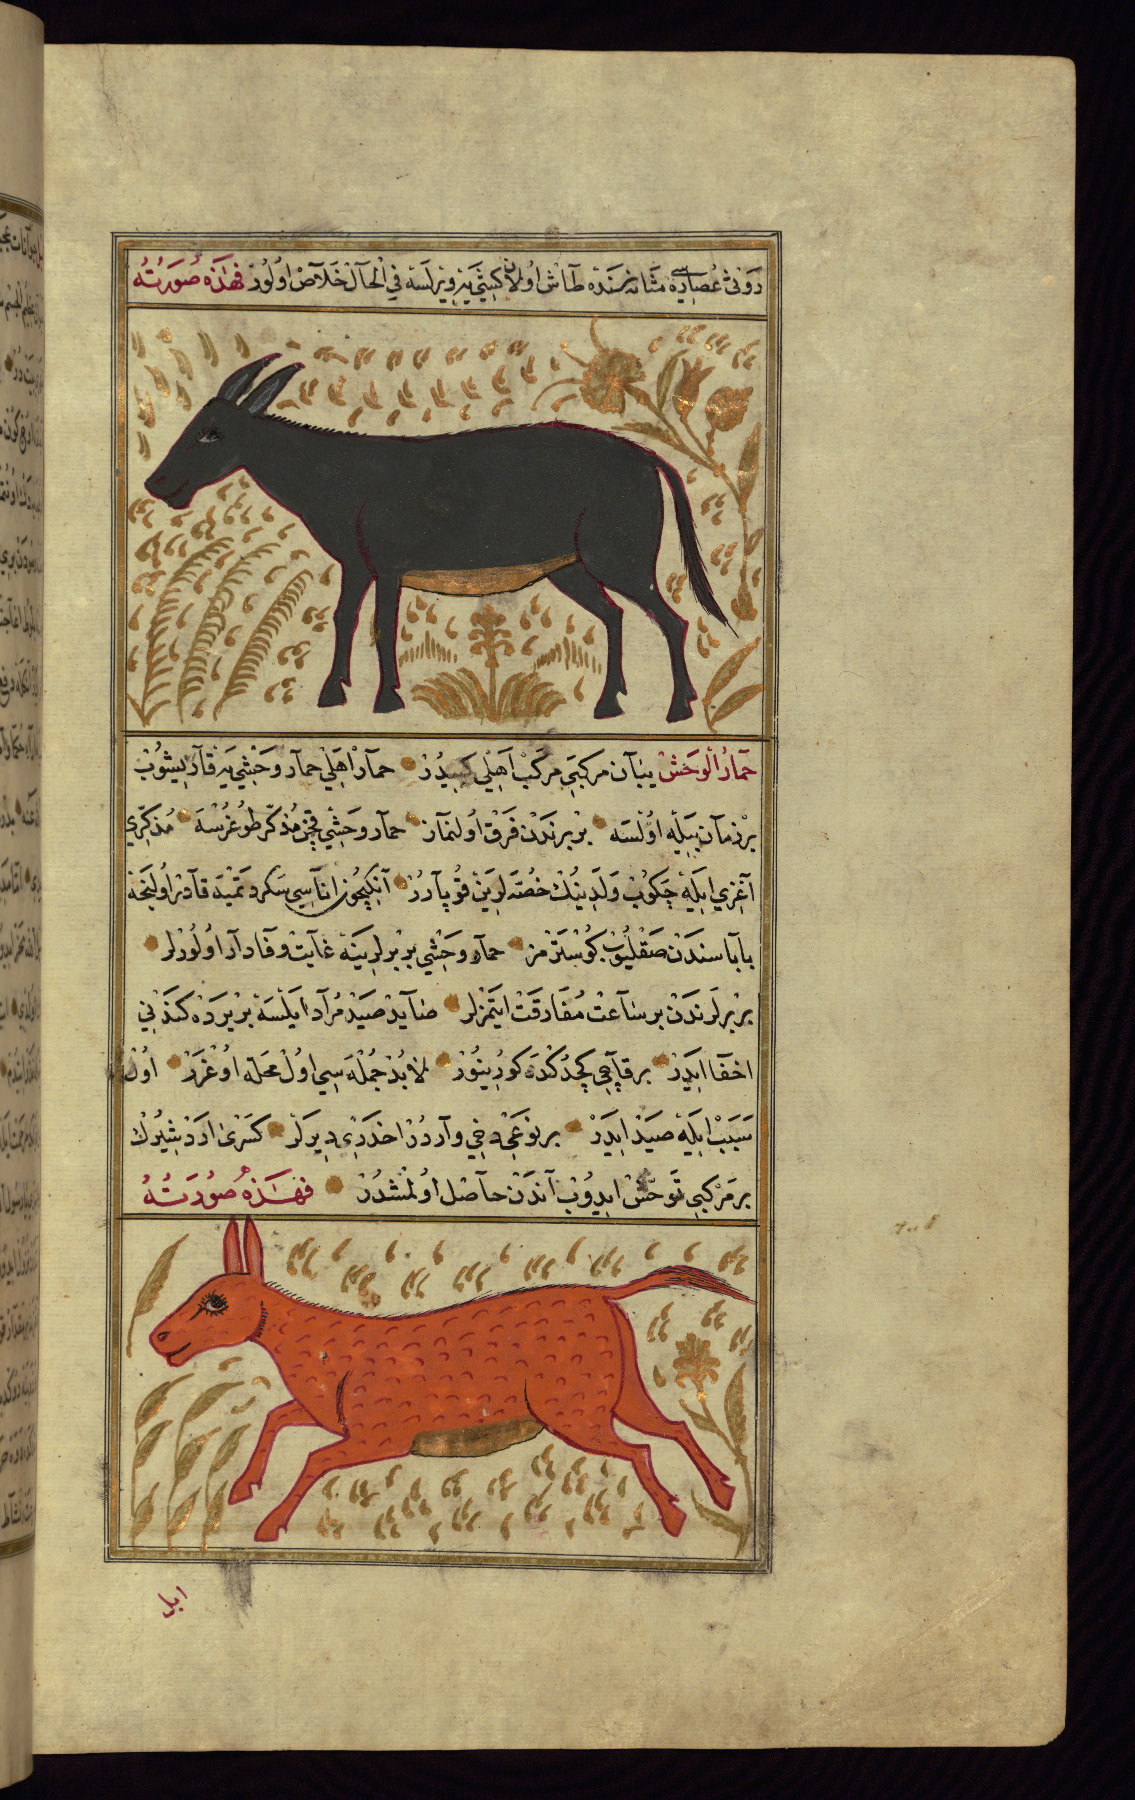 دونی عصاره‌سی مثانه‌سنده طاش اولان کشی‌یه ویرلسه فی الحال خلاص اولور فهذه صورته
حمار الوحش یبان مرکبی مرکب اهلی کبیدر حمار اهلی حمار وحشی‌یه قاریشوب
بر زمان بیله اولسه بر برندن فرق اولنماز حمار وحشی قچن مذکر طوغرسه مذکری
آغزی ایله چکوب ولدینک خصیه‌لرین قوپارر آنکیچون اناسی سکردتمیه قادر اولنجه
باباسندن صقلیوب کوسترمز حمار وحشی بر برلرینه غایت وفادار اولورلر
بر برلرندن بر ساعت مفارقت ایتمزلر صاید صید مراد ایلسه بر یرده کندنی
اخفا ایدر بر قاچی کچدکده کورینور لابد جمله‌سی اول محله اوغرر اول
سبب ایله صید ایدر بر نوعی دخی واردر اخدری دیرلر کسری اردشیرک
بر مرکبی توحش ایدوب آندن حاصل اولمشدر فهذه صورته
ایل